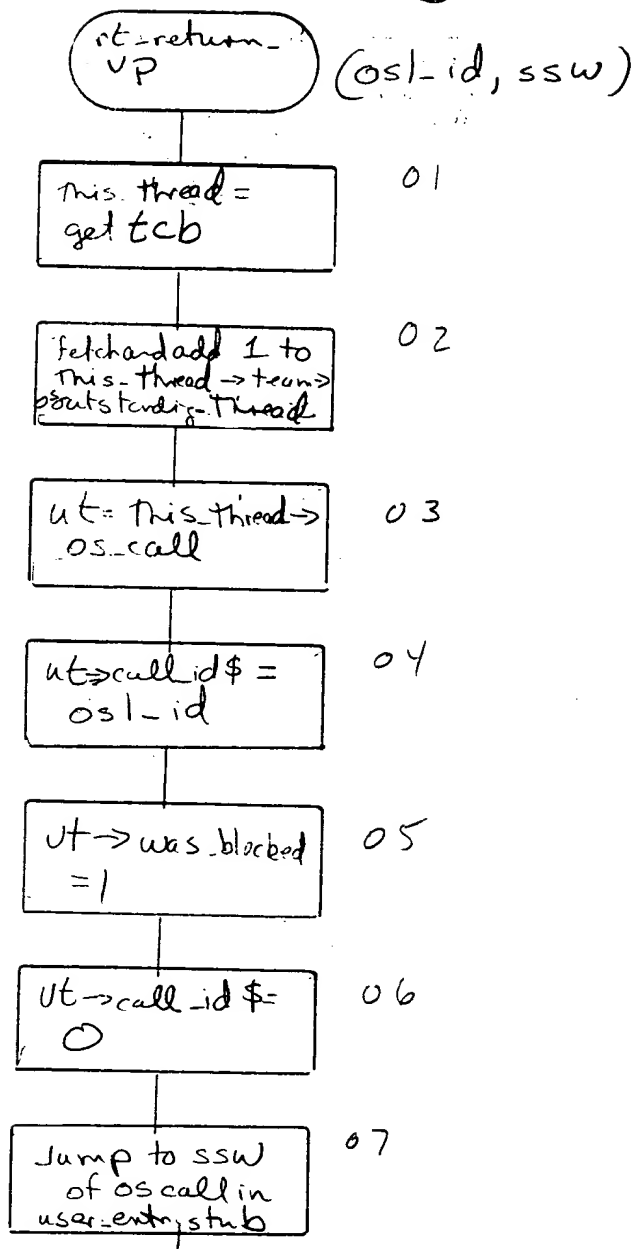 rt-return-
vp
(osl-id, ssw)
This.thread =
get tcb
01
fetchandadd 1 to
This-thread → team→
thread
02
ut = This_thread→
os_call
03
ut→call_id$ =
osl-id
04
ut→was_blocked
=1
05
ut→call_id$=
0
06
Jump to ssw
of os call in
user-entry stub
07